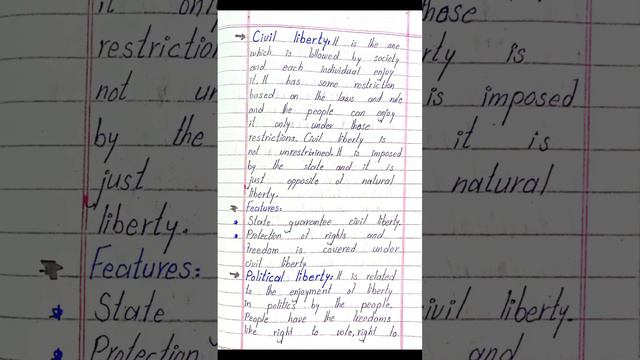 → Civil liberty: It is the one
which is followed by society
and each individual enjoy
it. It has some restriction
based on the laws and rule
and the people can enjoy
it only under those
restrictions. Civil liberty is
not unrestrained. It is imposed
by the state and it is
just opposite of natural
liberty.
→ Features:
• State guarantee civil liberty.
• Protection of rights and
freedom is covered under
civil liberty
→ Political liberty: It is related
to the enjoyment of liberty
in politics by the people.
People have the freedoms
like right to vote, right to